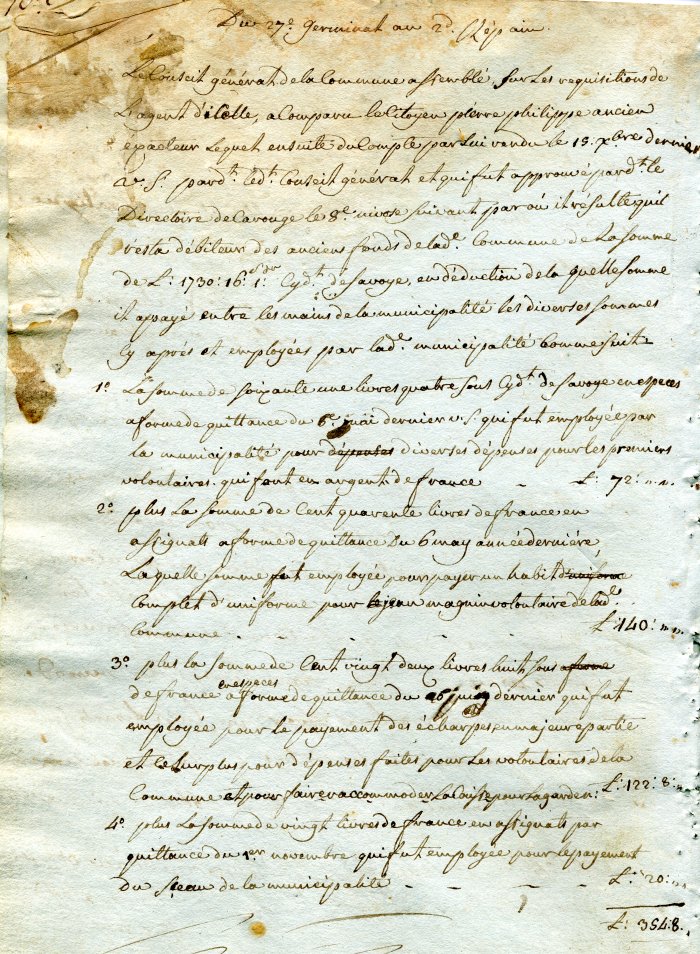 Du 27e. Germinal an 2d. Répain.
Le Conseil général de la Commune assemblé, sur Les requisitions de
L'agent d'icelle, a Comparu le Citoyen pierre philippe ancien
exacteur Lequel ensuite du Compte par Lui randu le 15. Xbre dernier
v. S. pardt. ledt. Conseil général et qui fut approuvé pardt. le
Directoire de Carouge le 8e. nivose suivant par où il résulte qu'il
resta débiteur des anciens fonds de lade. Commune de La somme
de L: 1730: 16s: 1: Cydt. de Savoye, en déduction de la quelle somme
il a payé entre les mains de la municipalité les diverses sommes
Cy après et employées par lade. municipalité Comme suit
1o. La somme de soixante une livres quatre sous Cydt. de Savoye en especes
a forme de quittance du 6e. mäi dernier v. S. qui fut employée par
la municipalité pour dépenses diverses dépenses pour les premiers
volontaires. qui font en argent de france - - L: 72: " "
2o. plus La somme de Cent quarente livres de france en
assignats a forme de quittance Du 6 may année dernière,
La quelle somme fut employée pour payer un habit d'uniforme
Complet d'uniforme pour jean magnin voluntaire de lade.
Commune - - - - L: 140: " "
3o. plus la somme de Cent vingt deux livres huit sous a forme
de france en especes a forme de quittance du 26 juin dernier qui fut
employée pour le payement des écharpes en majeure partie
et le Surplus pour dépenses faites pour Les volontaires de la
Commune et pour faire raccommoder La Caisse pour la garde n: L: 122: 8:
4o. plus La somme de vingt livres de france en assignats par
quittance du 1er novembre qui fut employée pour le payement
Du Sceau de la municipalité - - - L: 20: "
L: 354: 8.